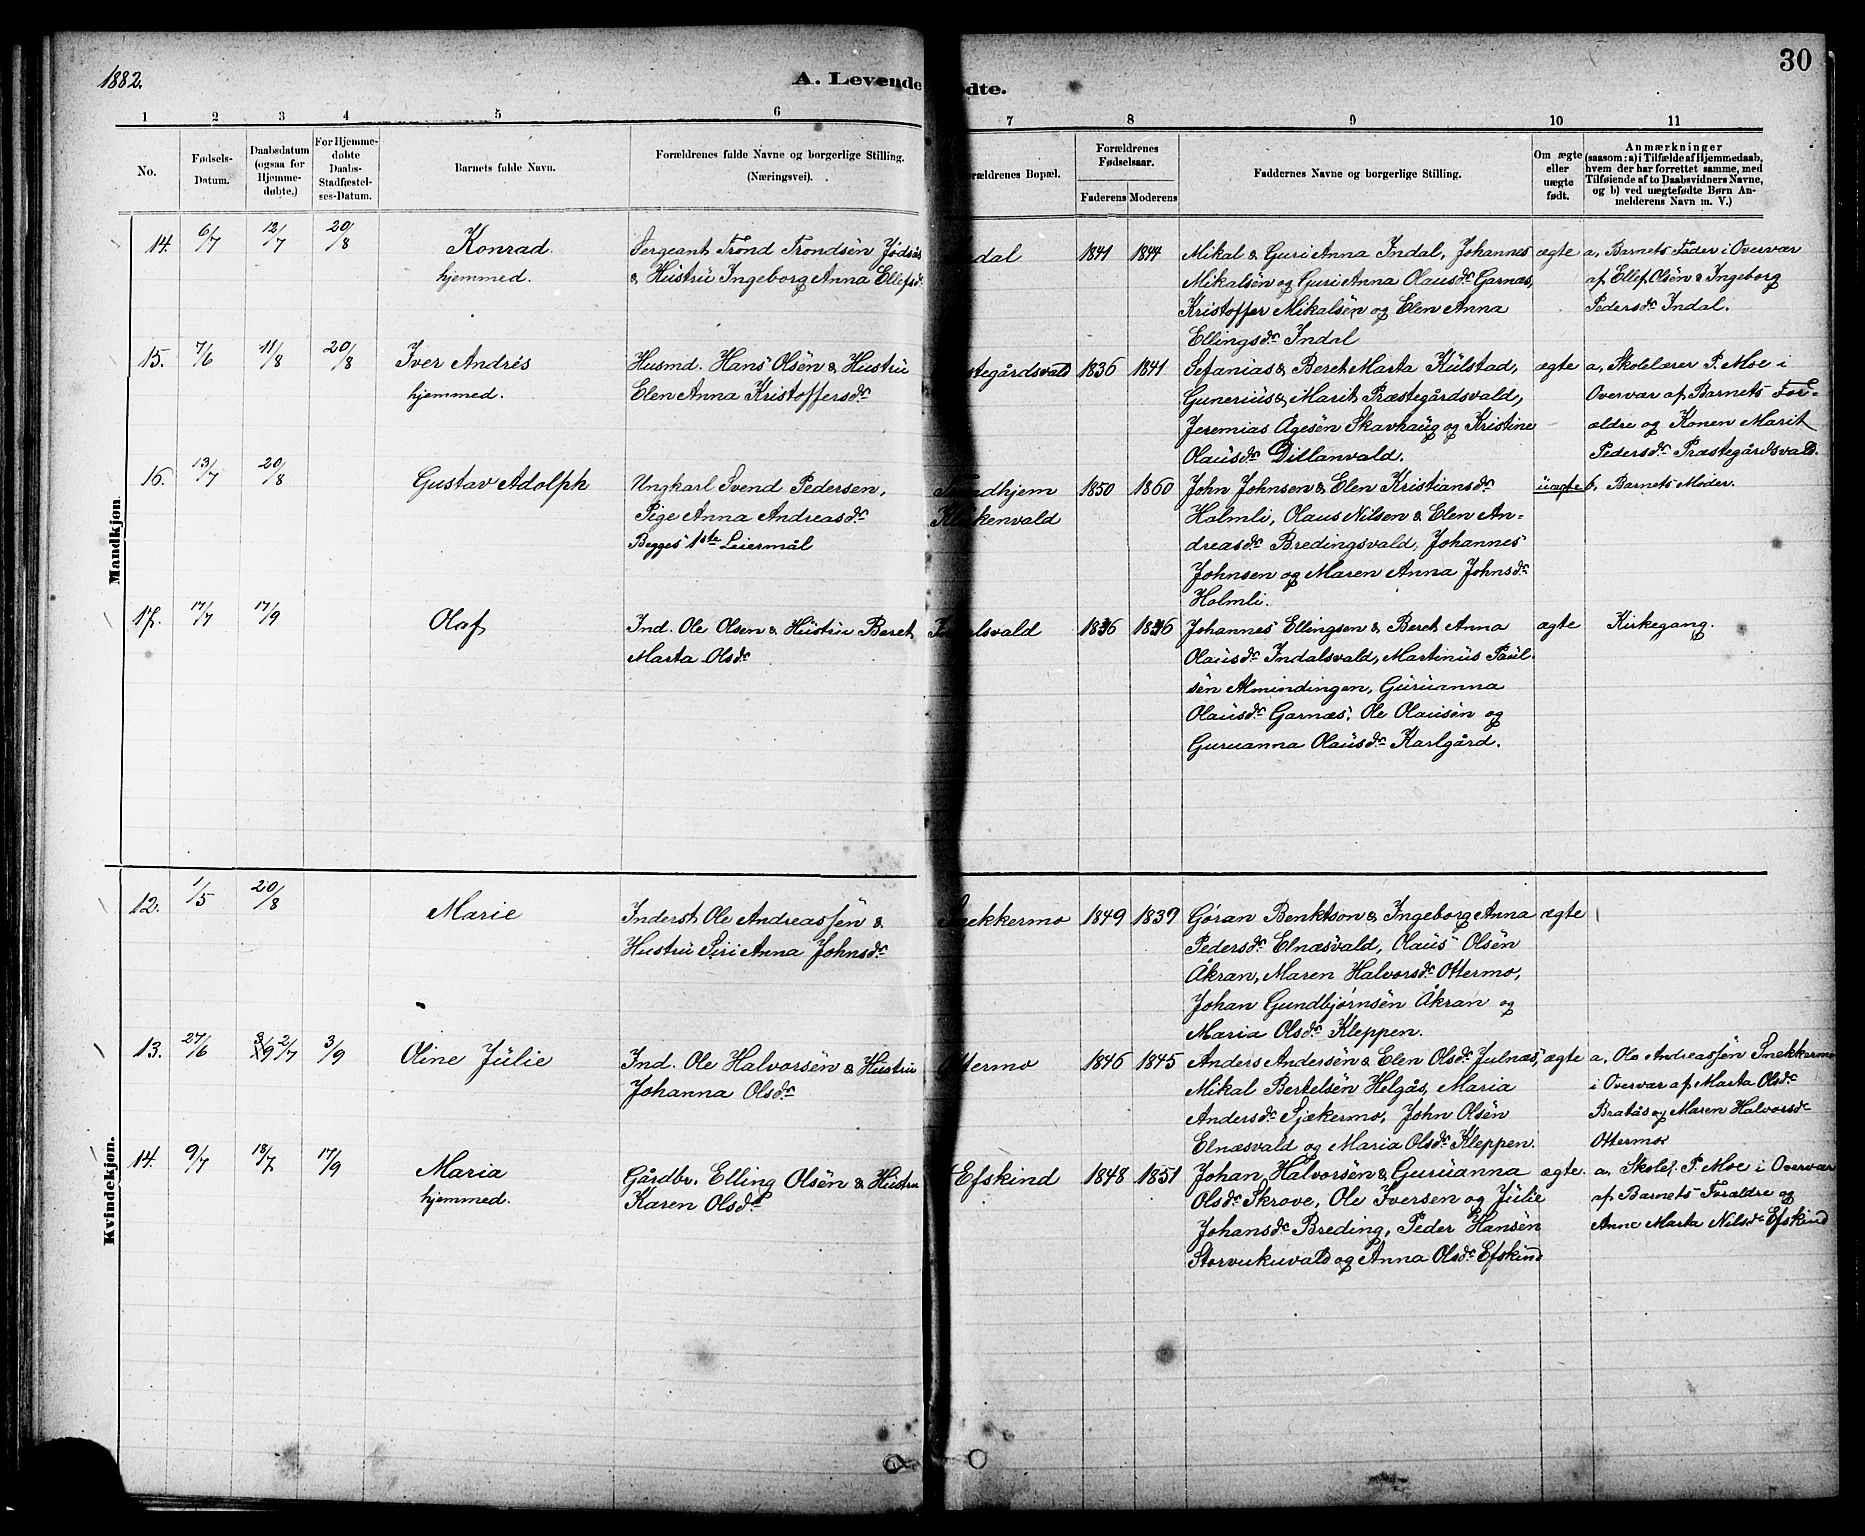 1882.
A. Levende
ødte.
30
1 2 3 4 5 6 7 8 9 10 11
No.
Fødsels-
Datum.
Daabsdatum
(ogsaa for
Hjemme-
døbte.)
For Hjemme-
døbte
Daabs-
Stadfæstel-
ses-Datum.
Barnets fulde Navn.
Forældrenes fulde Navne og borgerlige Stilling.
(Næringsvei).
orældrenes Bopæl.
Forældrenes
Fødselsaar.
Faderens Moderens
Faddernes Navne og borgerlige Stilling.
Om ægte
eller
uægte
født.
Anmærkninger
(saasom: a) i Tilfælde af Hjemmedaab,
hvem der har forrettet samme, med
Tilføiende af to Daabsvidners Navne,
og b) ved uægtefødte Børn An-
melderens Navn m. V.)
Mandkjøn
14. 6/7 12/7 20/8 Konrad
hjemmed.
Sergeant Trond Trondsen
& Hustru Ingeborg Anna Ellefsdr
dal 1841 1844
Mikal & Guri Anna Indal, Johannes
Mikalsen og Guri Anna Olausdr Garnæs,
Kristoffer Mikalsen og Elen Anna
Ellingsdr Indal
ægte
a, Barnets Fader i Overvær
af Ellef Olsen & Ingeborg
Pedersdr Indal.
15. 7/6 11/8 20/8 Iver Andrés
hjemmed.
Husmd. Hans Olsen & Hustru
Elen Anna Kristoffersdr
stegårdsvald 1836 1841
Sefanias & Beret Marta Kulstad,
Gunerius & Marit Præstegårdsvald,
Jeremias Agesen Skavhaug og Kristine
Olausdr Dillanvald.
ægte
a, Skolelærer P. Moe i
Overvær af Barnets For-
ældre og Konen Marit
Pedersdr Præstegårdsvald.
16. 13/7 20/8 Gustav Adolph
Ungkarl Svend Pedersen,
Pige Anna Andreasdr
Begges 1ste Leiermål
Trondhjem
Klokkenvald
1850 1860
John Johnsen & Elen Kristiansdr
Holmli, Olaus Nilsen & Elen An-
dreasdr Bredingsvald, Johannes
Johnsen og Maren Anna Johnsdr
Holmli.
uægte
b. Barnets Moder.
17. 17/7 17/9 Olaf
Ind. Ole Olsen & Hustru Beret
Marta Olsdr
Indalsvald 1836 1836
Johannes Ellingsen & Beret Anna
Olausdr Indalsvald, Martinus Paul-
sen Almindingen, Guruanna
Olausdr Garnæs, Ole Olausen og
Guruanna Olausdr Karlgård.
ægte
Kirkegang.
Kvindekjøn.
12. 1/5 20/8 Marie
Inderst Ole Andreassen &
Hustru Siri Anna Johnsdr
Snekkermo 1849 1839
Gøran Benktson & Ingeborg Anna
Pedersdr Elnæsvald, Olaus Olsen
Åkran, Maren Halvorsdr Ottermo,
Johan Gundbjørnsen Åkran og
Maria Olsdr Kleppen.
ægte
13. 27/6 3/9 2/7 3/9 Oline Julie
Ind. Ole Halvorsen & Hustru
Johanna Olsdr
Ottermo 1846 1845
Anders Andersen & Elen Olsdr Julnæs,
Mikal Bertelsen Helgås, Maria
Andersdr Sjækermo, John Olsen
Elnæsvald og Maria Olsdr Kleppen.
ægte
a, Ole Andreassen Snekkermo
i Overvær af Marta Olsdr
Bratås og Maren Halvorsdr
Ottermo
14. 9/7 18/7 17/9 Maria
hjemmed.
Gårdbr. Elling Olsen & Hustru
Karen Olsdr
Efskind 1848 1851
Johan Halvorsen & Guruanna
Olsdr Skrove, Ole Iversen og Julie
Johansdr Breding, Peder Hansen
Storvukuvald og Anna Olsdr Efskind
ægte.
a. Skolel. P. Moe i Overvær
af Barnets Forældre og
Anne Marta Nilsdr Efskind